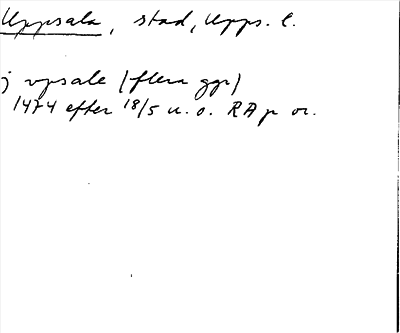 Uppsala, stad, Upps. l.
j vpsale (flera ggr)
1474 efter 18/5 u. o. RAp or.